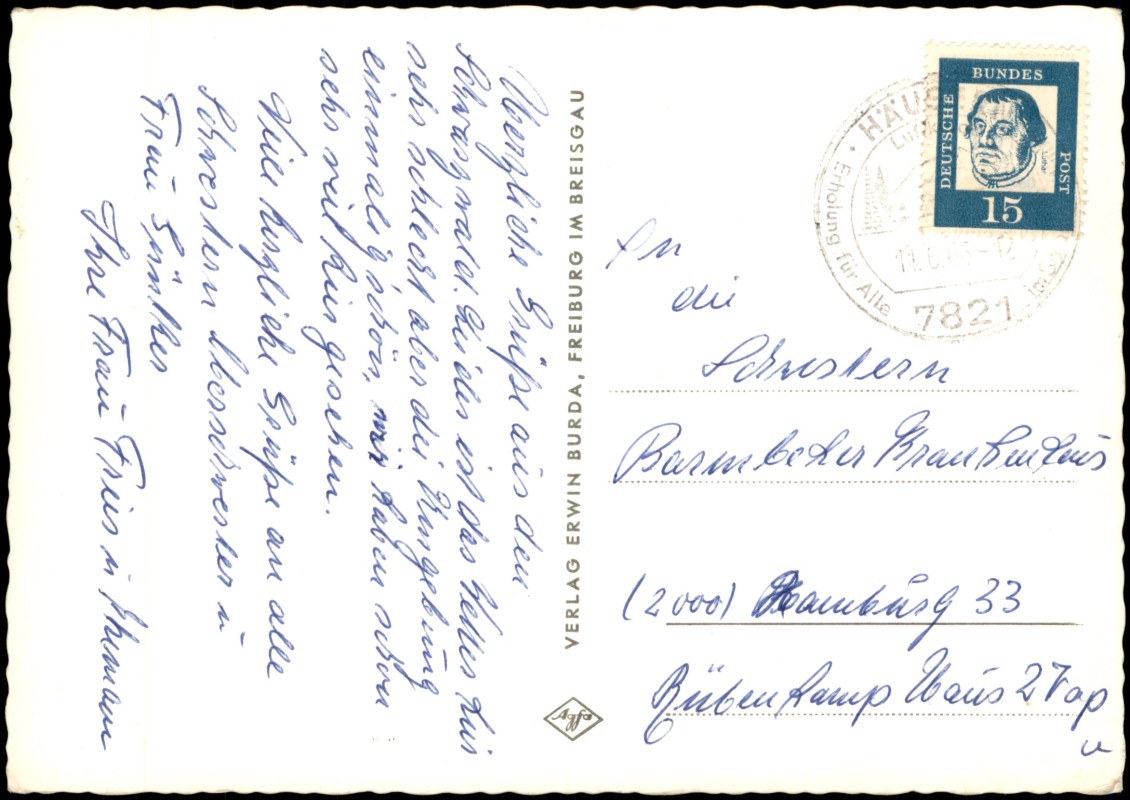 Herzliche Grüße aus den
Schwarzwald. Leider ist das Wetter hir
sehr schlecht aber die Umgebung
einmalig schön, wir haben schon
sehr viel hir gesehen.
Viele herzliche Grüße an alle
Schwestern Oberschwester u
Frau Günther
Ihre Frau Friis u Ehemann
VERLAG ERWIN BURDA, FREIBURG IM BREISGAU
Agfa
DEUTSCHE BUNDES POST
Luther
15
HÄUS
Erholung für Alle
7821
An
die
Schwestern
Barmbeker Krankenhaus
(2000) Hamburg 33
Rübenkamp Haus 2 Top
u